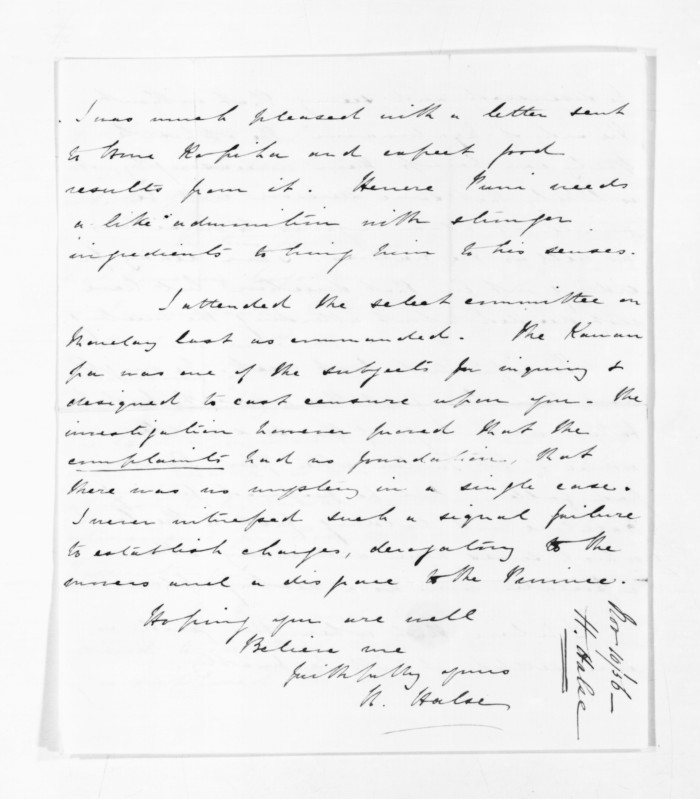 I was much pleased with a letter sent
to Wme Rapiha and expect good
results from it. Henere Puni needs
a like "admonition with stronger
ingredients to bring him to his senses.
I attended the select committee on
Monday last as commanded. The Karaan
pa was one of the subjects for inquiry &
designed to cast censure upon you. The
investigation however proved that the
complaints had no foundation, that
there was no mystery in a single case.
I never witnessed such a signal failure
to establish charges, derogatory to the
movers and a disgrace to the Province.
Hoping you are well
Believe me
faithfully yours
H. Halse
Nov 10/56
H. Halse